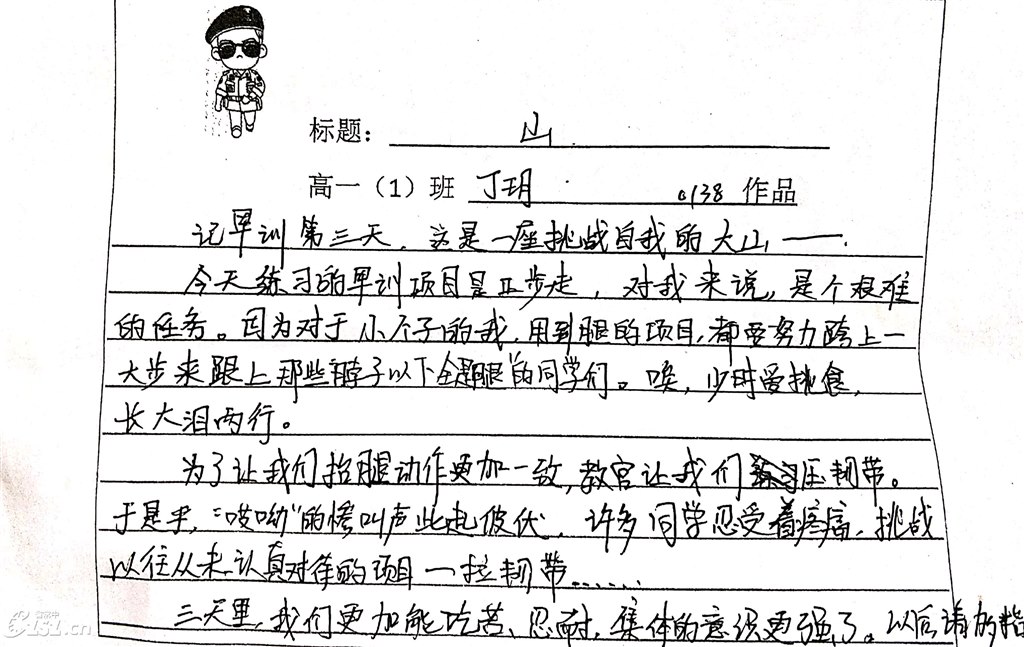 标题: 山
高一（1）班 丁玥 0138 作品
记军训第三天，这是一座挑战自我的大山——.
今天练习的军训项目是正步走，对我来说，是个艰难
的任务。因为对于小个子的我，用到腿的项目，都要努力跨上一
大步来跟上那些“脖子以下全是腿”的同学们。唉，少时爱挑食，
长大泪两行。
为了让我们抬腿动作更加一致，教官让我们压韧带。
于是乎，“哎呦”的惨叫声此起彼伏，许多同学忍受着疼痛，挑战
以往从未认真对待的项目—拉韧带……
三天里，我们更加能吃苦、忍耐，集体的意识更强了。以后请